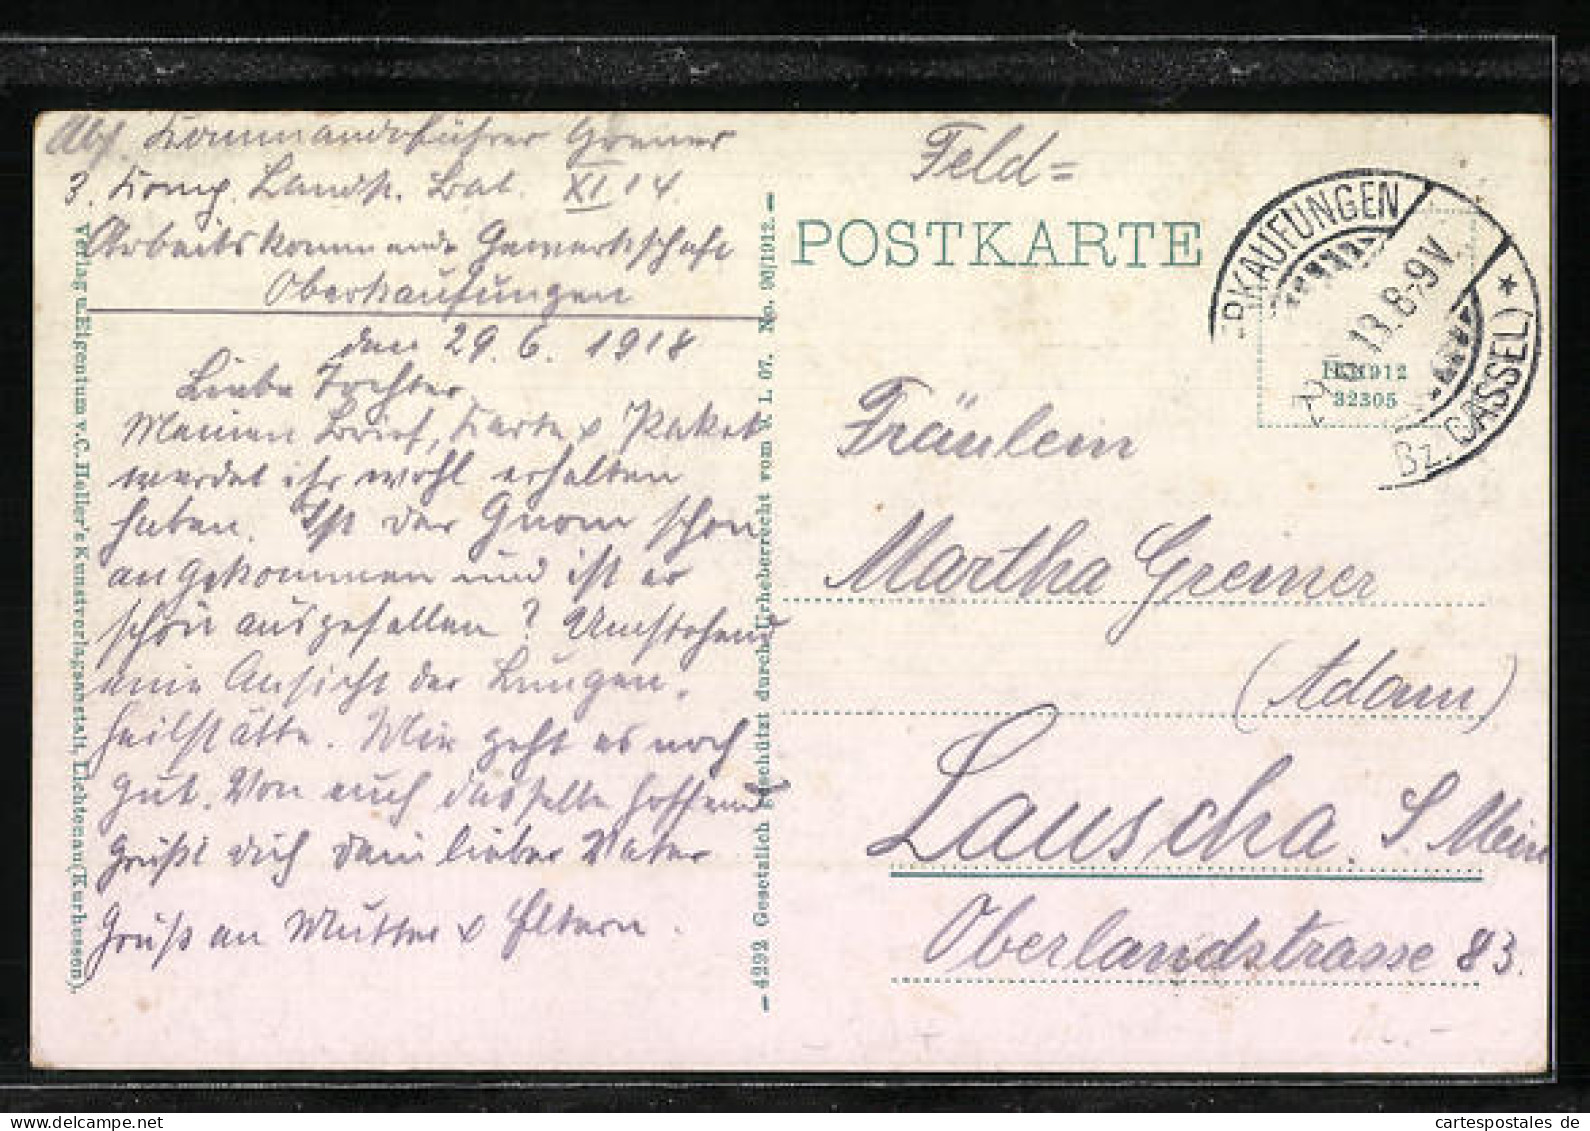 Abs. Kommandoführer Greiner
3. Komp. Landst. Bat. XI 14.
Arbeitskommando Gewerkschaft
Oberkaufungen
den 29. 6. 1918
Liebe Tochter
Meinen Brief, Karte & Paket
werdet ihr wohl erhalten
haben. Ist der Gnom schon
angekommen und ist er
schön ausgefallen? Umstehend
eine Ansicht der Lungen-
heilstätte. Mir geht es noch
gut. Von euch dasselbe hoffend
Grüßt dich dein lieber Vater
Gruß an Mutter & Eltern.
Verlag u. Eigentum v. C. Holler's Kunstverlagsanstalt, Lichtenau (Kurhessen).
— 4292 Gesetzlich geschützt durch Urheberrecht vom V. L. 07. No. 90/1912. —
Feld=
POSTKARTE
ERKAUFUNGEN
8-9V.
* Bz. CASSEL)
1912
32305
Fräulein
Martha Greiner
(Adam)
Lauscha. S Mein
Oberlandstrasse 83.
cartespostales de